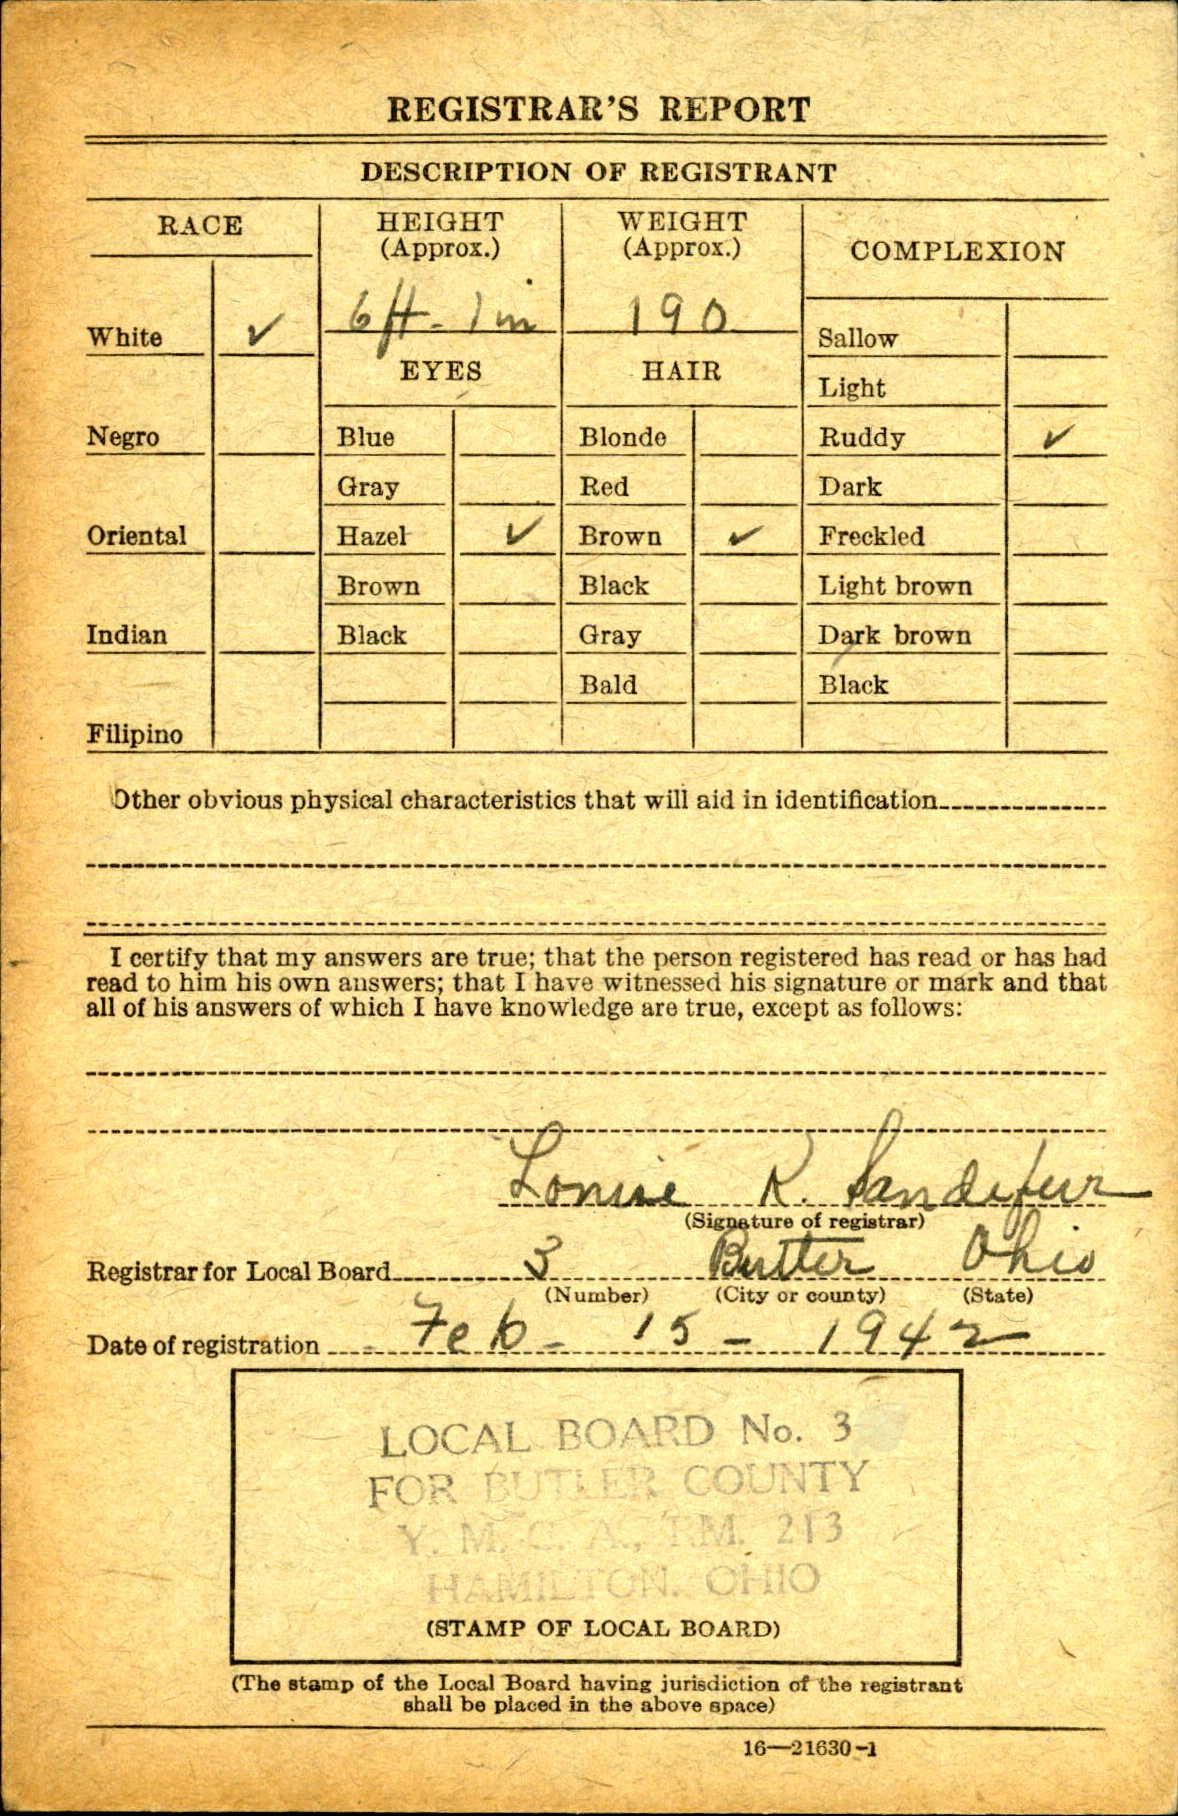 REGISTRAR'S REPORT
DESCRIPTION OF REGISTRANT
RACE
HEIGHT (Approx.)
WEIGHT (Approx.)
COMPLEXION
6 ft - 1 in
190
White ✓
EYES
HAIR
Sallow
Light
Negro
Blue
Blonde
Ruddy ✓
Gray
Red
Dark
Oriental
Hazel ✓
Brown ✓
Freckled
Brown
Black
Light brown
Indian
Black
Gray
Dark brown
Bald
Black
Filipino
Other obvious physical characteristics that will aid in identification
I certify that my answers are true; that the person registered has read or has had
read to him his own answers; that I have witnessed his signature or mark and that
all of his answers of which I have knowledge are true, except as follows:
Louise R. Sandefur
(Signature of registrar)
Registrar for Local Board 3 Butler Ohio
(Number) (City or county) (State)
Date of registration Feb - 15 - 1942
LOCAL BOARD No. 3
FOR BUTLER COUNTY
Y. M. C. A., RM. 213
HAMILTON, OHIO
(STAMP OF LOCAL BOARD)
(The stamp of the Local Board having jurisdiction of the registrant
shall be placed in the above space)
16—21630-1